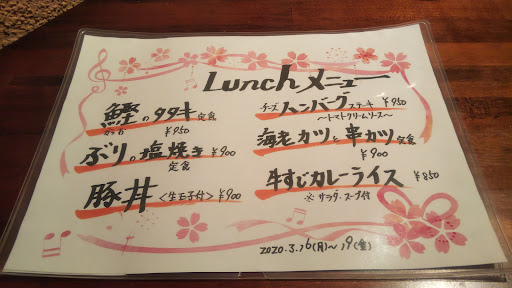 Lunch メニュー
鰹のタタキ定食
かつお
¥950
ぶりの塩焼き ¥900
定食
豚丼〈生玉子付〉¥900
チーズハンバーグステーキ ¥950
〜トマトクリームソース〜
海老カツと串カツ定食
¥900
牛すじカレーライス ¥850
※サラダ、スープ付
2020.3.16(月)〜19(金)